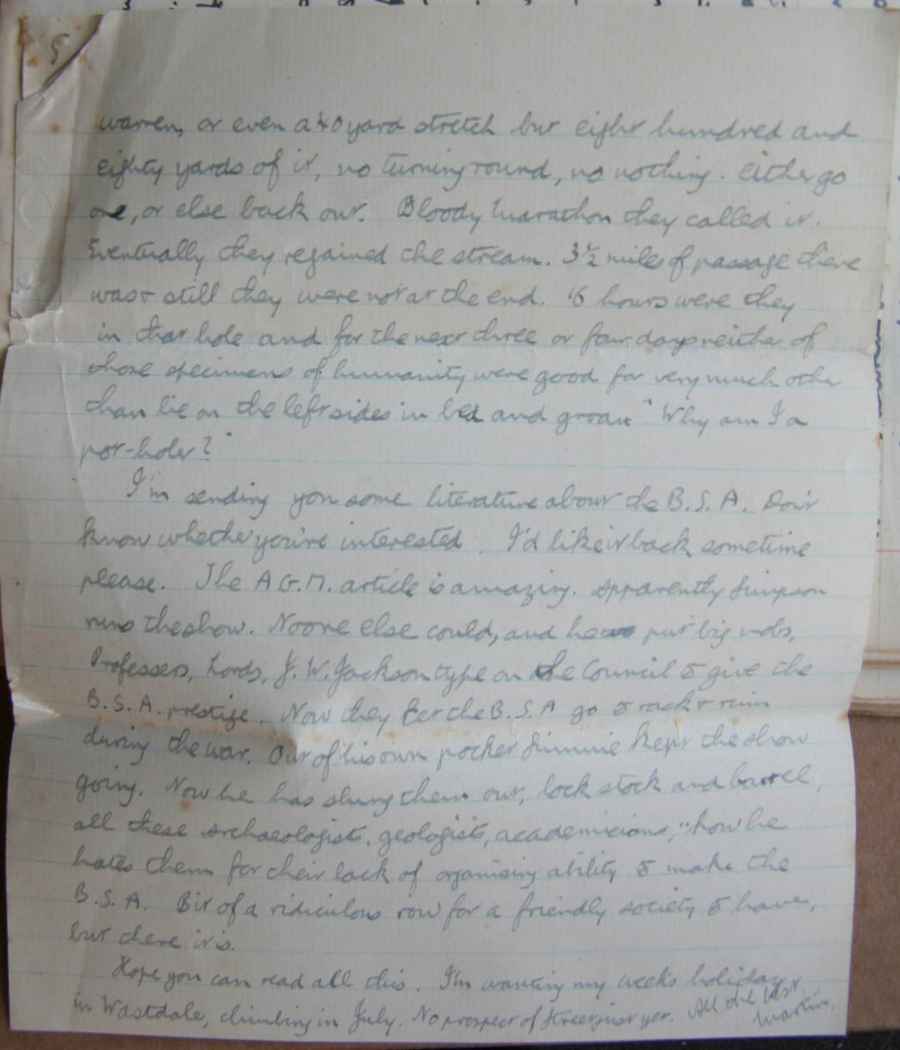 5
warren, or even a 40 yard stretch but eight hundred and
eighty yards of it, no turning round, no nothing. Either go
one, or else back out. Bloody Marathon they called it.
Eventually they regained the stream. 3½ miles of passage there
was & still they were not at the end. 16 hours were they
in that hole and for the next three or four days neither of
those specimens of humanity were good for very much other
than lie on the left sides in bed and groan "Why am I a
pot-holer?"
I'm sending you some literature about the B.S.A. Don't
know whether you're interested. I'd like it back sometime
please. The A.G.M. article is amazing. Apparently Simpson
runs the show. No one else could, and he put big nobs,
Professors, Lords, J.W. Jackson type on the Council to give the
B.S.A. prestige. Now they let the B.S.A go to rack & ruin
during the war. Out of his own pocket Simmie kept the show
going. Now he has slung them out, lock stock and barrel,
all these archaeologists, geologists, academicians, how he
hates them for their lack of organising ability to make the
B.S.A. Bit of a ridiculous row for a friendly society to have,
but there it is.
Hope you can read all this. I'm wanting my weeks holiday
in Wastdale, climbing in July. No prospect of just yet. All the best
Martin.